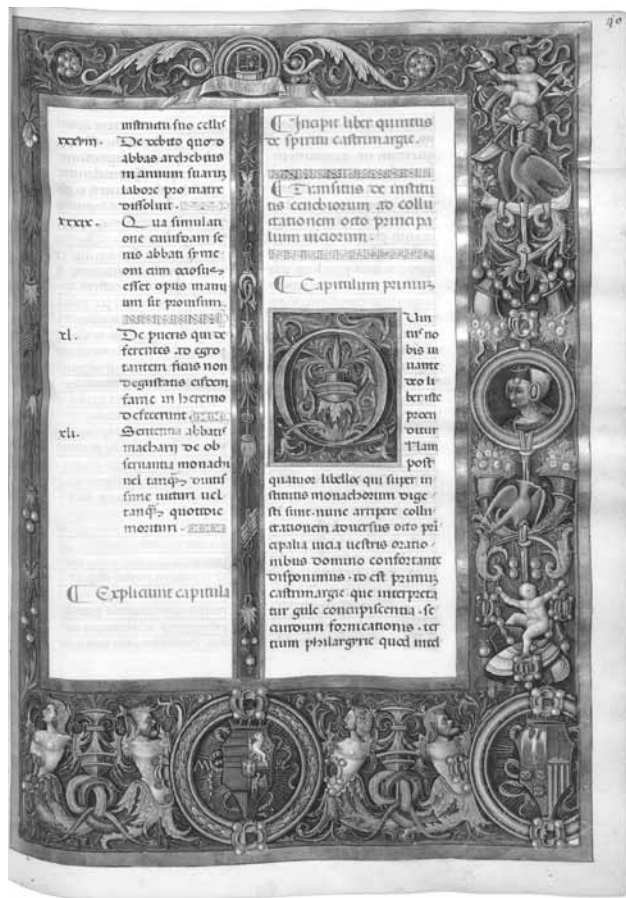 90
instituti suo cellis
xxxviii. De debito quod
abbas archebius
in annum suarum
labore pro matre
dissoluit.
xxxix. Qua simulati
one cuiusdam se
nis abbati syme
oni cum ociosus
esset opus manu
um sit prouisum.
xl. De pueris qui de
ferentes ad egro
tantem ficus non
degustatis eisdem
fame in heremo
defecerunt.
xli. Sententia abbatis
macharii de ob
seruantia monachi
uel tanq; diutis
sime uicturi uel
tanq; quottidie
morituri.
Expliciunt capitula
Incipit liber quintus
de spiritu castrimargie.
Transitus de institu
tis cenobiorum ad collu
ctationem octo principa
lium uiciorum.
Capitulum primum
Quin
tus no
bis iu
uante
deo li
ber iste
procu
ditur
Nam
post
quatuor libellos qui super in
stitutis monachorum dige
sti sunt nunc arripere collu
ctationem aduersus octo pri
cipalia uicia uestris oratio
nibus domino confortante
disponimus. id est primum
castrimargie que interpreta
tur gule concupiscentia. se
cundum fornicationis. ter
tium philargyrie quod intel